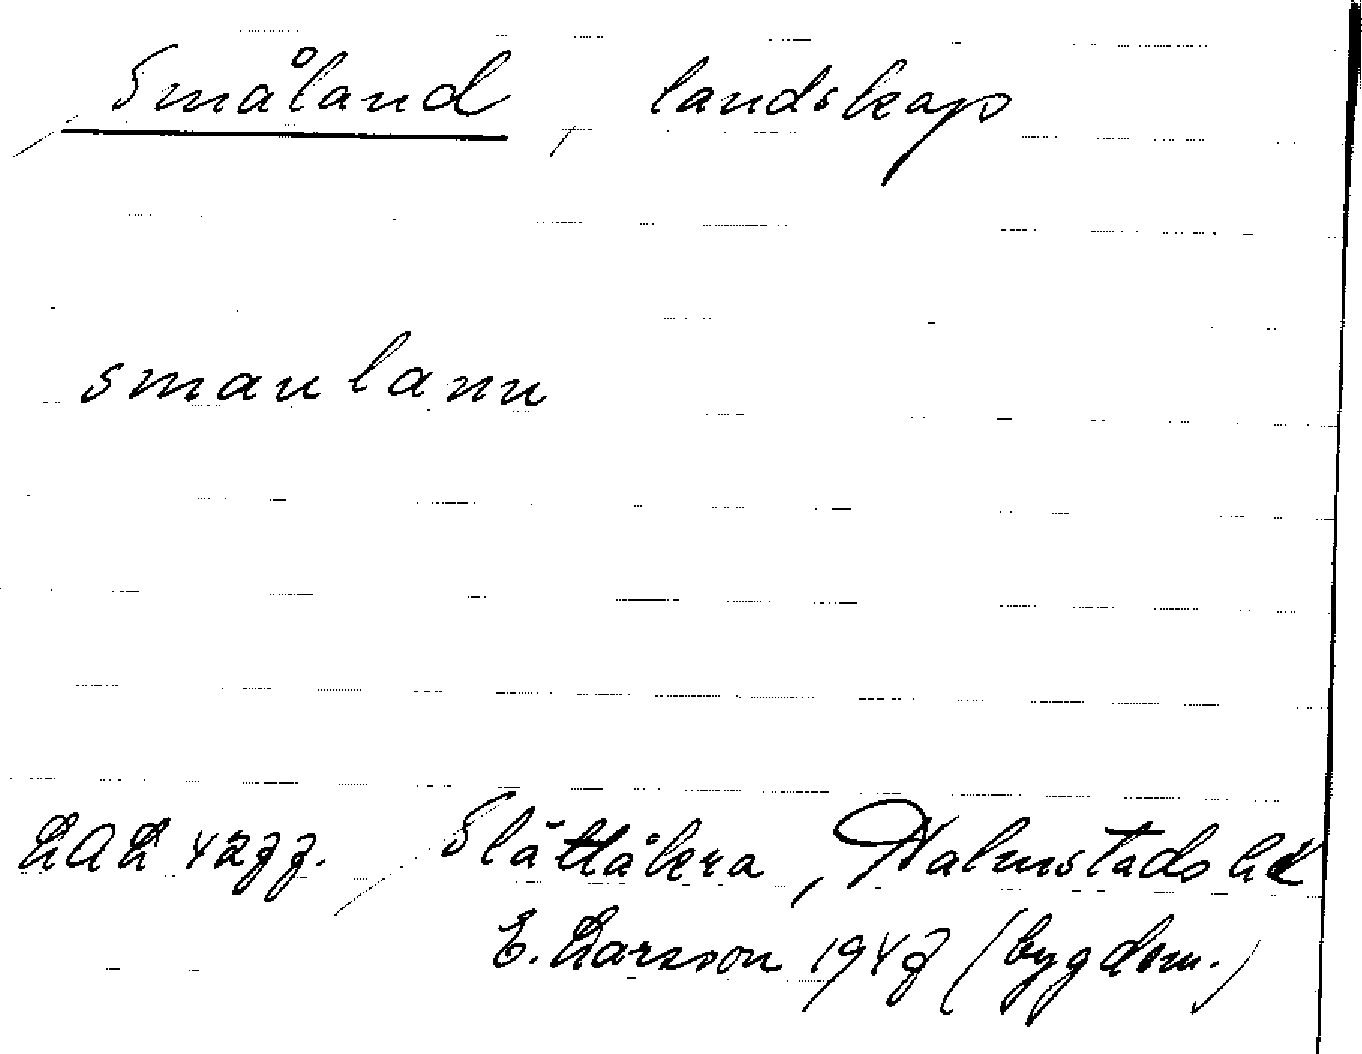 Småland, landskap
smaulann
LAL 4277. Slättåkra, Halmstads hd
E. Larsson 1947 (bygdem.)